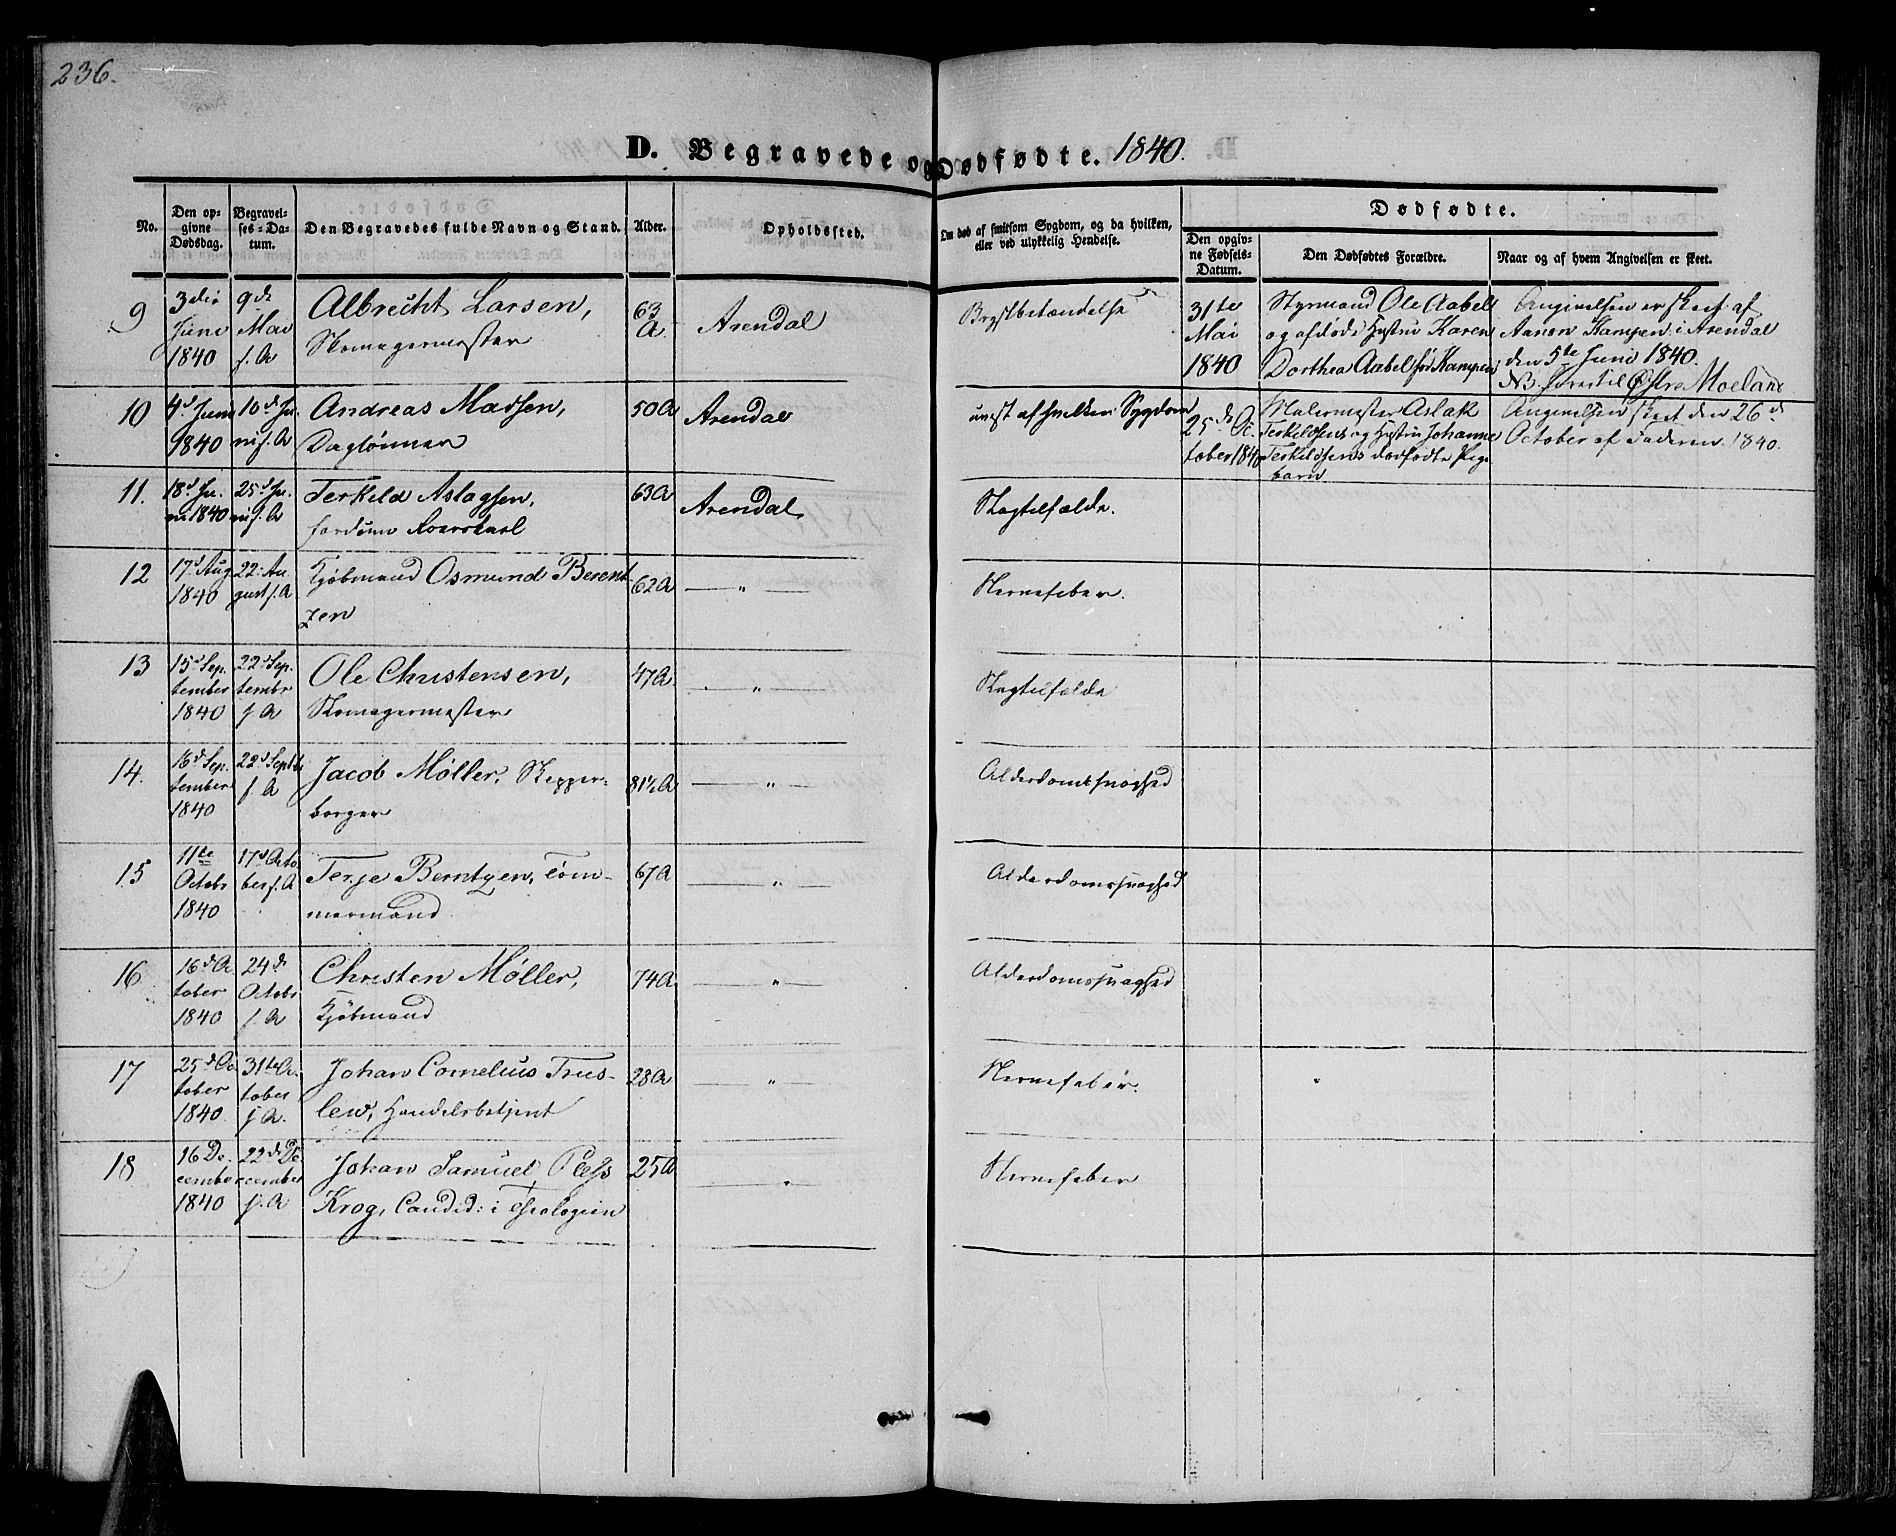 236.
D. Begravede og Dødfødte. 1840.
No.
Den opgivne Dødsdag.
Begravelses-Datum.
Den Begravedes fulde Navn og Stand.
Alder.
Opholdssted.
Om død af smitsom Sygdom, og da hvilken,
eller ved ulykkelig Hendelse.
Dødfødte.
Den opgivne Fødsels-Datum.
Den Dødfødtes Forældre.
Naar og af hvem Angivelsen er skeet.
9
3die Juni 1840
9de
f. A
Albrecht Larsen,
Skomagermester
63 A.
Arendal
Brystbetændelse
31te Mai 1840
Styrmand Ole Aabel
og afdøde Hustru Karen
Dorthea Aabel
Angivelsen er skeet af
Aanon Kampen i Arendal
den 5te Juni 1840.
10
4d Juni 1840
10d Juni f. A
Andreas Madsen,
Daglønner
50 A
Arendal
Sygdom
25de October 1840
Malermester Aslak
Terkildsens og Hustru Johanne
Terkildsens dødfødte Pige
barn
Angivelsen skeet den 26d
October af Faderen 1840.
11.
18d Juni 1840
25d Juni f. A
Terkild Aslagsen,
fordum
63 A
Arendal
Slagtilfælde.
12
17d Aug 1840
22. August f. A
Kjøbmand Osmund Berent
zen
62 A
— " —
Nervefeber.
13
15d September 1840
22d Septembr f. A
Ole Christensen,
Skomagermester
47 A
— " —
Slagtilfælde
14.
16d September 1840
22d Septbr f. A
Jacob Møller, Skipper-
borger
81½ A
— " —
Alderdomssvaghed
15
11te Octobr 1840
17d October f. A
Terje Berntzen, Tøm-
mermand
67 A
— " —
Alderdomssvaghed
16
16d October 1840
24de Octobr f. A
Christen Møller,
Kjøbmand
74 A
— " —
Alderdomssvaghed
17
25d October 1840
31te October f. A.
Johan Cornelius Trus-
lew, Handelsbetjent
28 A
— " —
Nervefeber.
18
16 December 1840
22de December f. A
Johan Samuel
Krog, Candid: i Theologien
25 A
"
Nervefeber